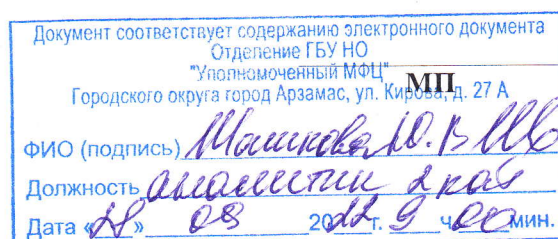 Документ соответствует содержанию электронного документа
Отделение ГБУ НО
"Уполномоченный МФЦ"
МП
Городского округа город Арзамас, ул. Кирова, д. 27 А
ФИО (подпись) Ю.В
Должность аналитик 2 кат
Дата «28» 08 2022 г. 9 ч 00 мин.